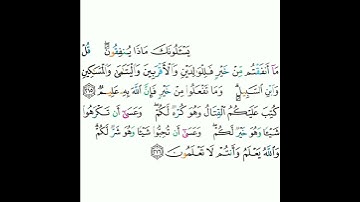 يَسْـَٔلُونَكَ مَاذَا يُنفِقُونَ ۖ قُلْ
مَآ أَنفَقْتُم مِّنْ خَيْرٍ فَلِلْوَٰلِدَيْنِ وَٱلْأَقْرَبِينَ وَٱلْيَتَٰمَىٰ وَٱلْمَسَٰكِينِ
وَٱبْنِ ٱلسَّبِيلِ ۗ وَمَا تَفْعَلُوا۟ مِنْ خَيْرٍ فَإِنَّ ٱللَّهَ بِهِۦ عَلِيمٌ ٢١٥
كُتِبَ عَلَيْكُمُ ٱلْقِتَالُ وَهُوَ كُرْهٌ لَّكُمْ ۖ وَعَسَىٰٓ أَن تَكْرَهُوا۟
شَيْـًٔا وَهُوَ خَيْرٌ لَّكُمْ ۖ وَعَسَىٰٓ أَن تُحِبُّوا۟ شَيْـًٔا وَهُوَ شَرٌّ لَّكُمْ ۗ
وَٱللَّهُ يَعْلَمُ وَأَنتُمْ لَا تَعْلَمُونَ ٢١٦